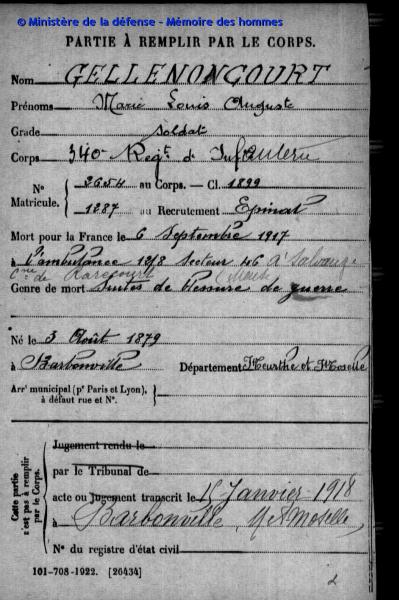 © Ministère de la défense - Mémoire des hommes
PARTIE À REMPLIR PAR LE CORPS.
Nom GELLENONCOURT
Prénoms Marie Louis Auguste
Grade Soldat
Corps 340e Regt d' Infanterie
N° Matricule. 2654 au Corps. — Cl. 1899
1287 au Recrutement Epinal
Mort pour la France le 6 Septembre 1917
à l'ambulance 12/8 Secteur 46 à Salvange
Cne de Rarécourt (Meuse)
Genre de mort Suites de blessure de guerre
Né le 3 Août 1879
à Barbonville Département Meurthe et Moselle
Arrt municipal (pr Paris et Lyon),
à défaut rue et N°.
Cette partie n'est pas à remplir par le Corps.
Jugement rendu le
par le Tribunal de
acte ou jugement transcrit le 15 Janvier 1918
à Barbonville, M et Moselle
N° du registre d'état civil
101-708-1922. [26434]